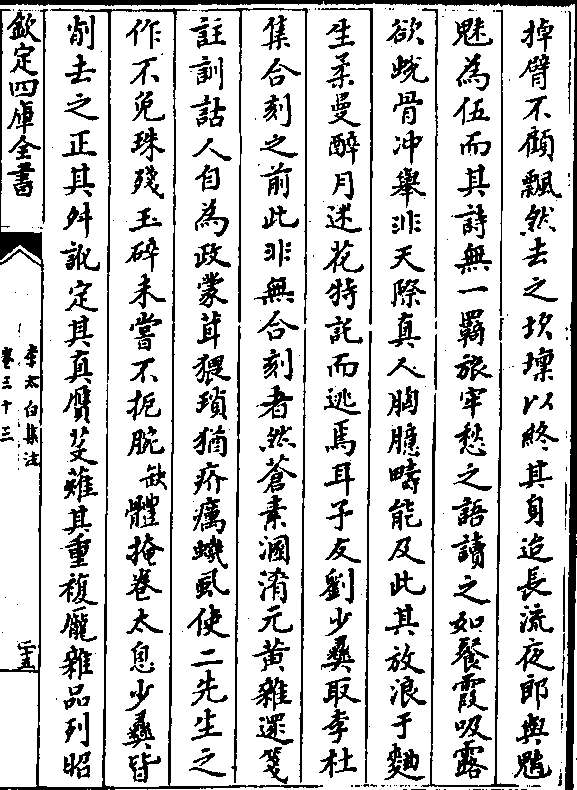 掉臂不顧飄然去之坎壈以終其身迨長流夜郎與魑
魅為伍而其詩無一羇旅牢愁之語讀之如餐霞吸露
欲蛻骨沖舉非天際真人胸臆疇能及此其放浪于麯
生柔曼醉月迷花特託而逃焉耳予友劉少彝取李杜
集合刻之前此非無合刻者然蒼素溷淆元黃雜遝箋
註訓詁人自為政蒙茸猥瑣猶疥癘蟣虱使二先生之
作不免珠殘玉碎未嘗不扼腕缺體掩卷太息少彝皆
削去之正其舛訛定其真贗芟薙其重複龎雜品列昭
欽定四庫全書
李太白集注
卷三十三
二十五